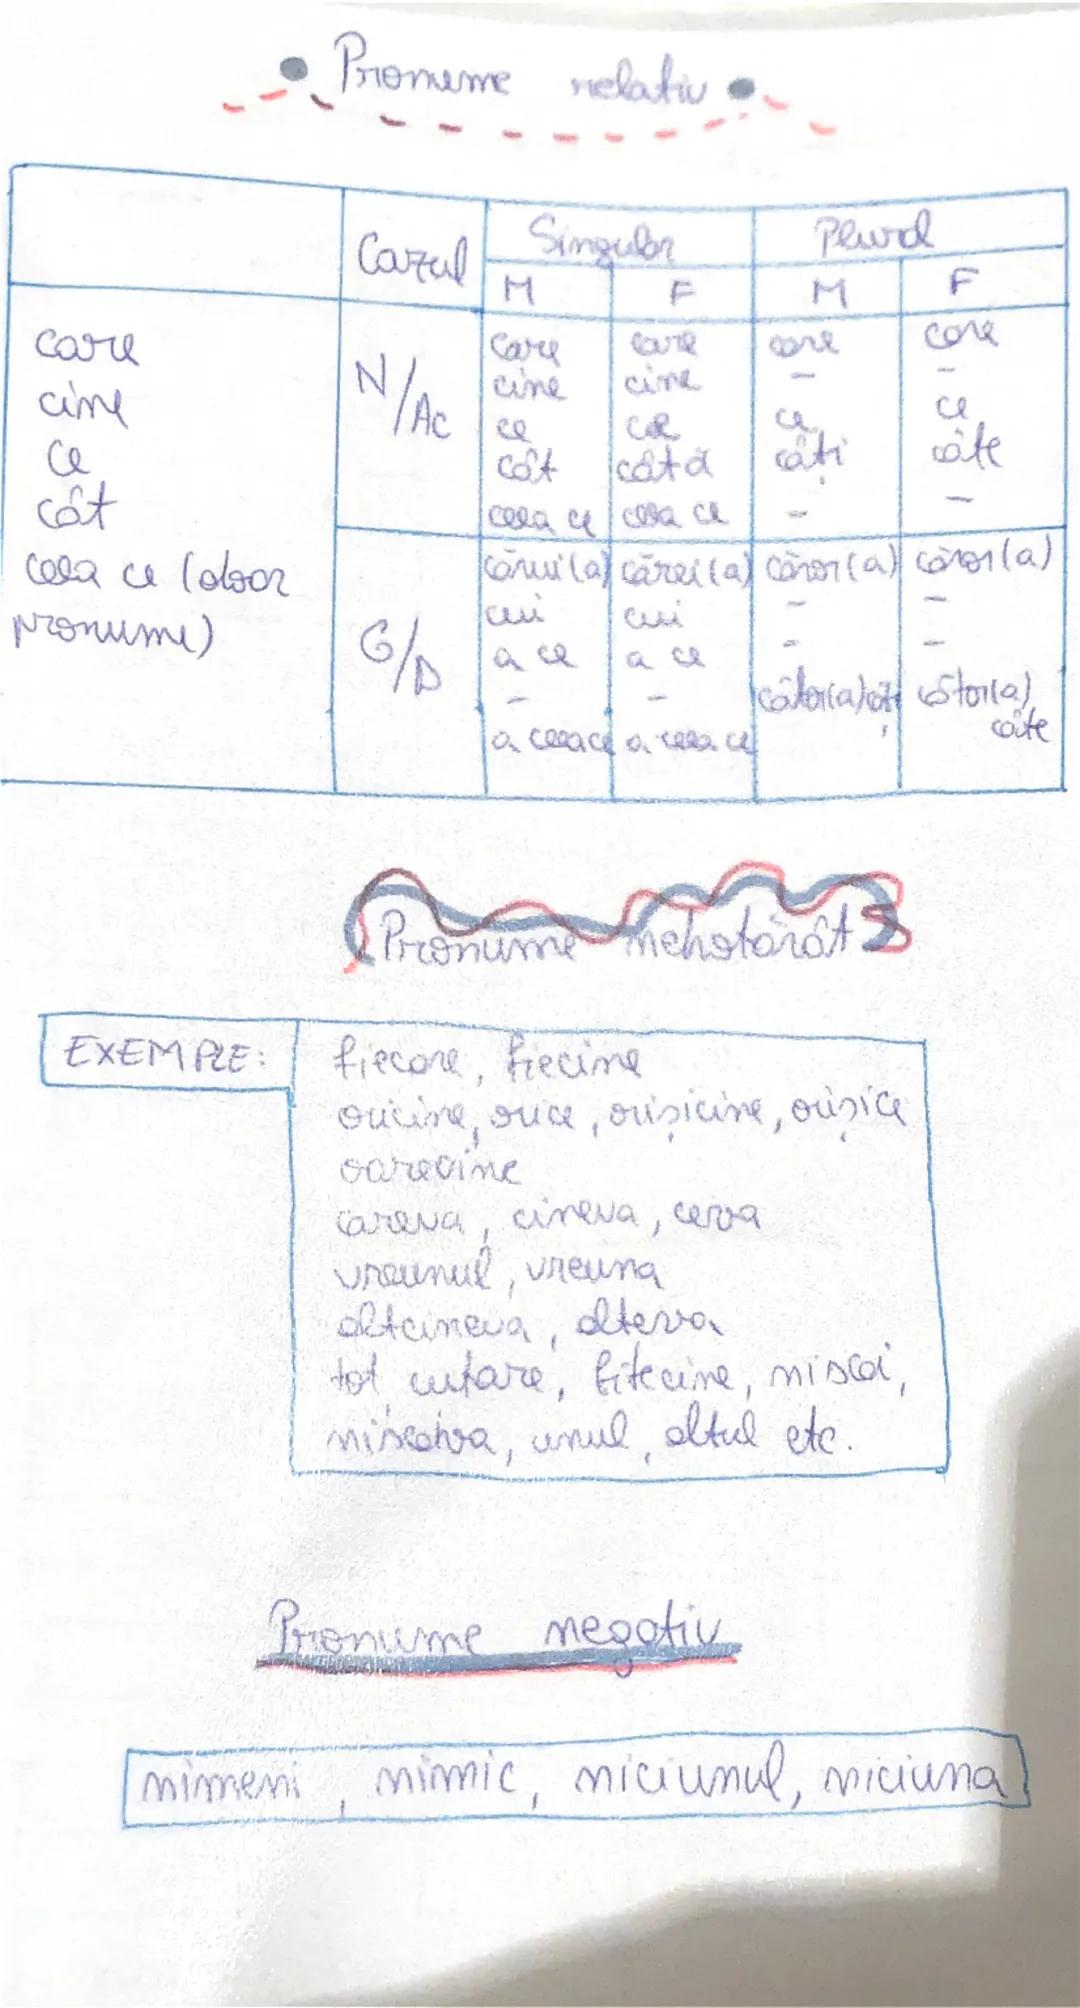 Pronume relativ
Cazul Singular Plural
M F M F
care
cine
ce
cât
ceea ce (doar
pronume)
N/Ac
care care care care
cine cine - -
ce ce ce ce
cât câtă câți câte
ceea ce ceea ce - -
G/D
cărui(a) cărei(a) căror(a) căror(a)
cui cui - -
a ce a ce - -
- - câtor(a) câți câtor(a) câte
a ceea ce a ceea ce
Pronume nehotărât
EXEMPLE:
fiecare, fiecine
oricine, orice, orișicine, orișice
oarecine
careva, cineva, ceva
vreunul, vreuna
altcineva, alteva
tot cutare, fitecine, niscai,
niscaiva, unul, altul etc.
Pronume negativ
nimeni, nimic, niciunul, niciuna